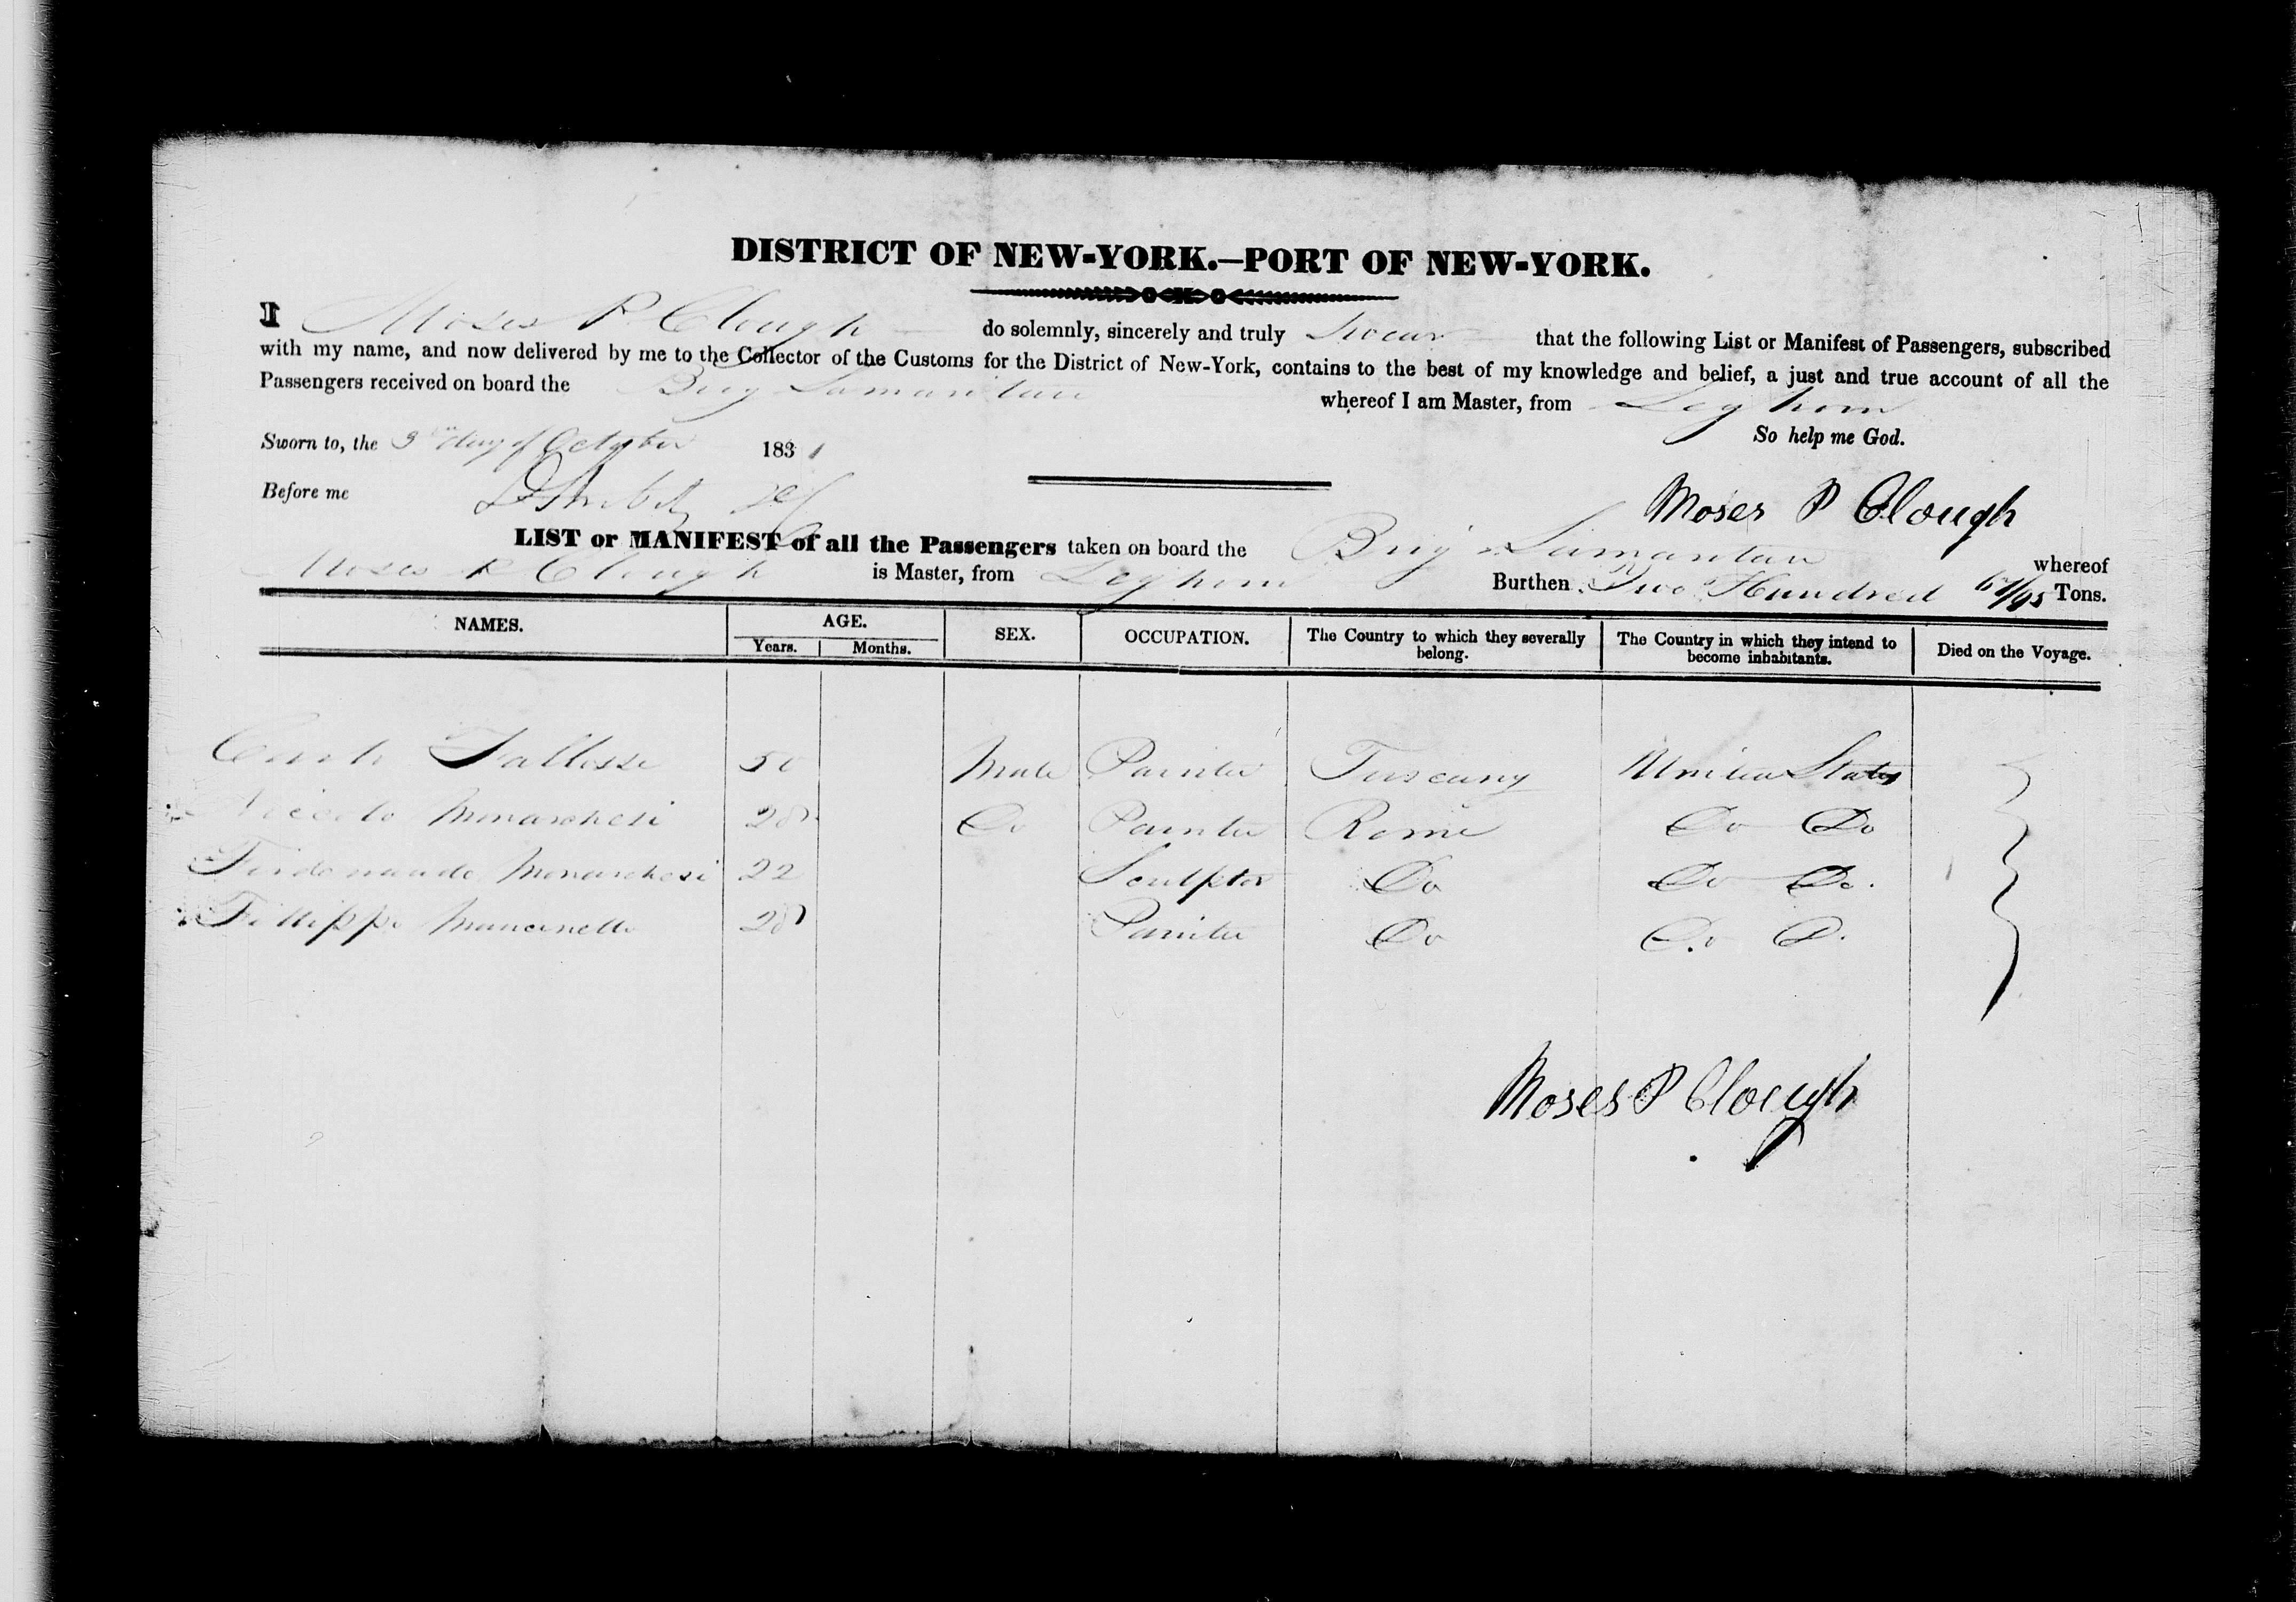 DISTRICT OF NEW-YORK.—PORT OF NEW-YORK.
I Moses P Clough do solemnly, sincerely and truly Swear that the following List or Manifest of Passengers, subscribed
with my name, and now delivered by me to the Collector of the Customs for the District of New-York, contains to the best of my knowledge and belief, a just and true account of all the
Passengers received on board the Brig Samaritan whereof I am Master, from Leghorn
So help me God.
Sworn to, the 3rd day of October 1831
Before me
Moses P Clough
LIST or MANIFEST of all the Passengers taken on board the Brig Samaritan whereof
Moses P Clough is Master, from Leghorn Burthen Two Hundred /95 Tons.
NAMES. AGE. SEX. OCCUPATION. The Country to which they severally belong. The Country in which they intend to become inhabitants. Died on the Voyage.
Years. Months.
Carlo 50 Male Painter Tuscany United States
Niccolo Monarchesi 28 Do Painter Rome Do Do
Ferdenando Monarchesi 22 Sculptor Do Do Do.
Fillippo Mancinelli 28 Painter Do Do D.
Moses P Clough